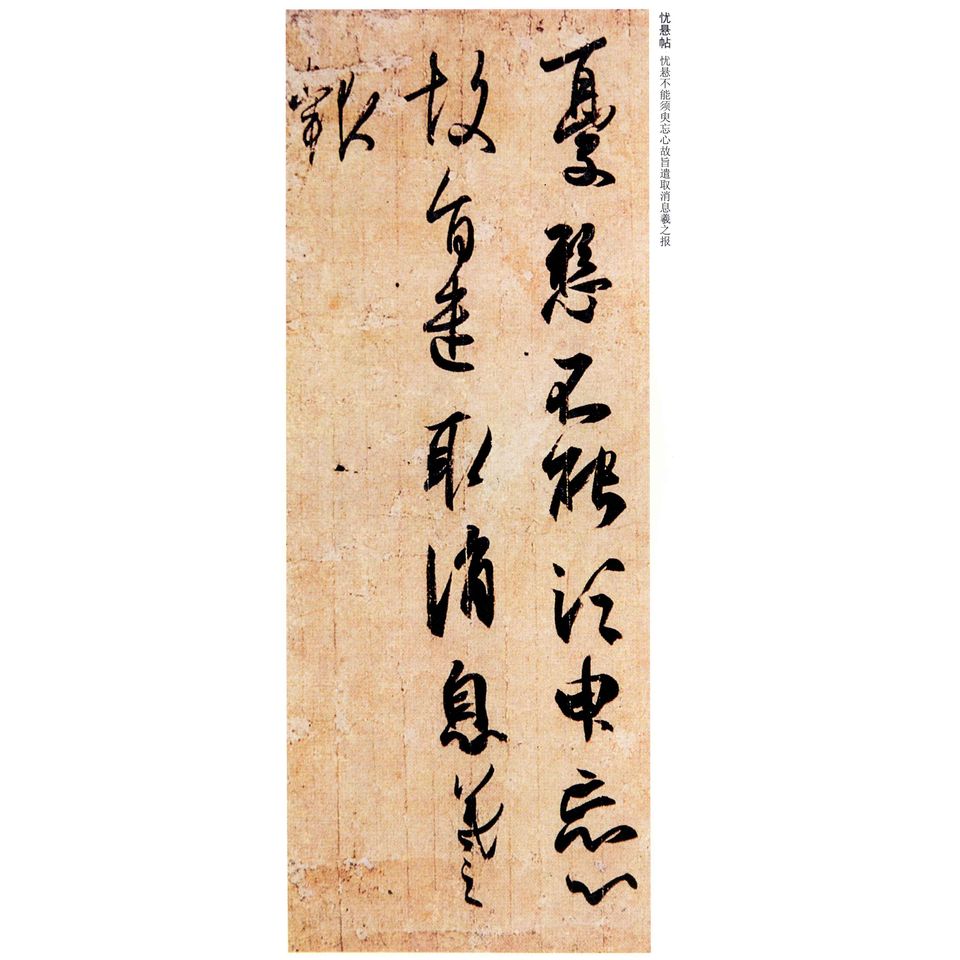 忧悬帖 忧悬不能须臾忘心故旨遣取消息羲之报
憂懸不能須臾忘心
故旨遣取消息羲之
報